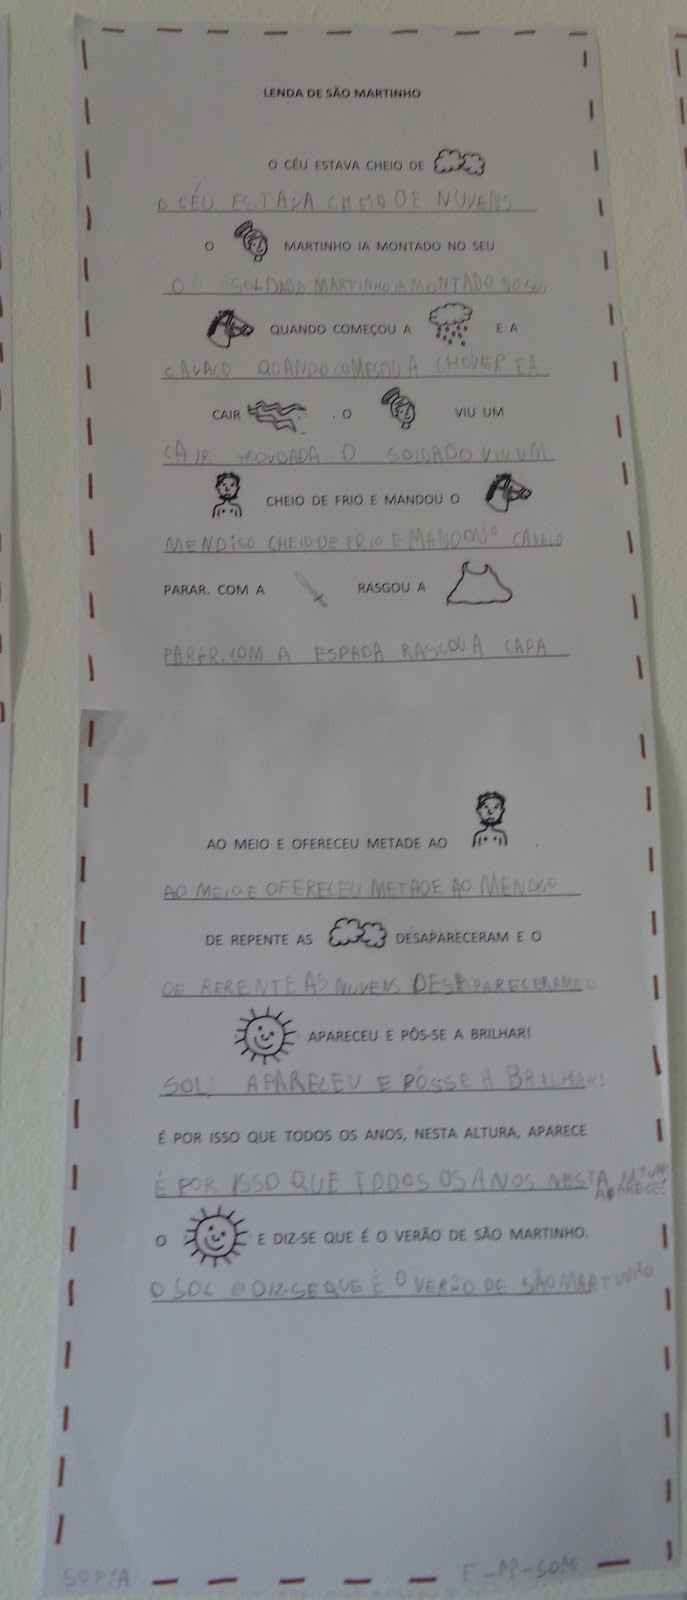 LENDA DE SÃO MARTINHO
O CÉU ESTAVA CHEIO DE
O CÉU ESTAVA CHEIO DE NUVENS
O MARTINHO IA MONTADO NO SEU
O SOLDADO MARTINHO IA MONTADO NO SEU
QUANDO COMEÇOU A E A
CAVALO QUANDO COMEÇOU A CHOVER E A
CAIR . O VIU UM
CAIR TROVOADA O SOLDADO VIU UM
CHEIO DE FRIO E MANDOU O
MENDISO CHEIO DE FRIO E MANDOU O CAVALO
PARAR. COM A RASGOU A
PARAR. COM A ESPADA RASGOU A CAPA
AO MEIO E OFERECEU METADE AO .
AO MEIO E OFERECEU METADE AO MENDIGO
DE REPENTE AS DESAPARECERAM E O
DE RERENTE AS NUVENS DESAPARECERAM E O
APARECEU E PÔS-SE A BRILHAR!
SOL APARECEU E PÔSSE A BRILHAR!
É POR ISSO QUE TODOS OS ANOS, NESTA ALTURA, APARECE
É POR ISSO QUE TODOS OS ANOS NESTA ALTURA
APARECE
O E DIZ-SE QUE É O VERÃO DE SÃO MARTINHO.
O SOL E DIZ-SE QUE É O VERÃO DE SÃO MARTINHO
SOFIA